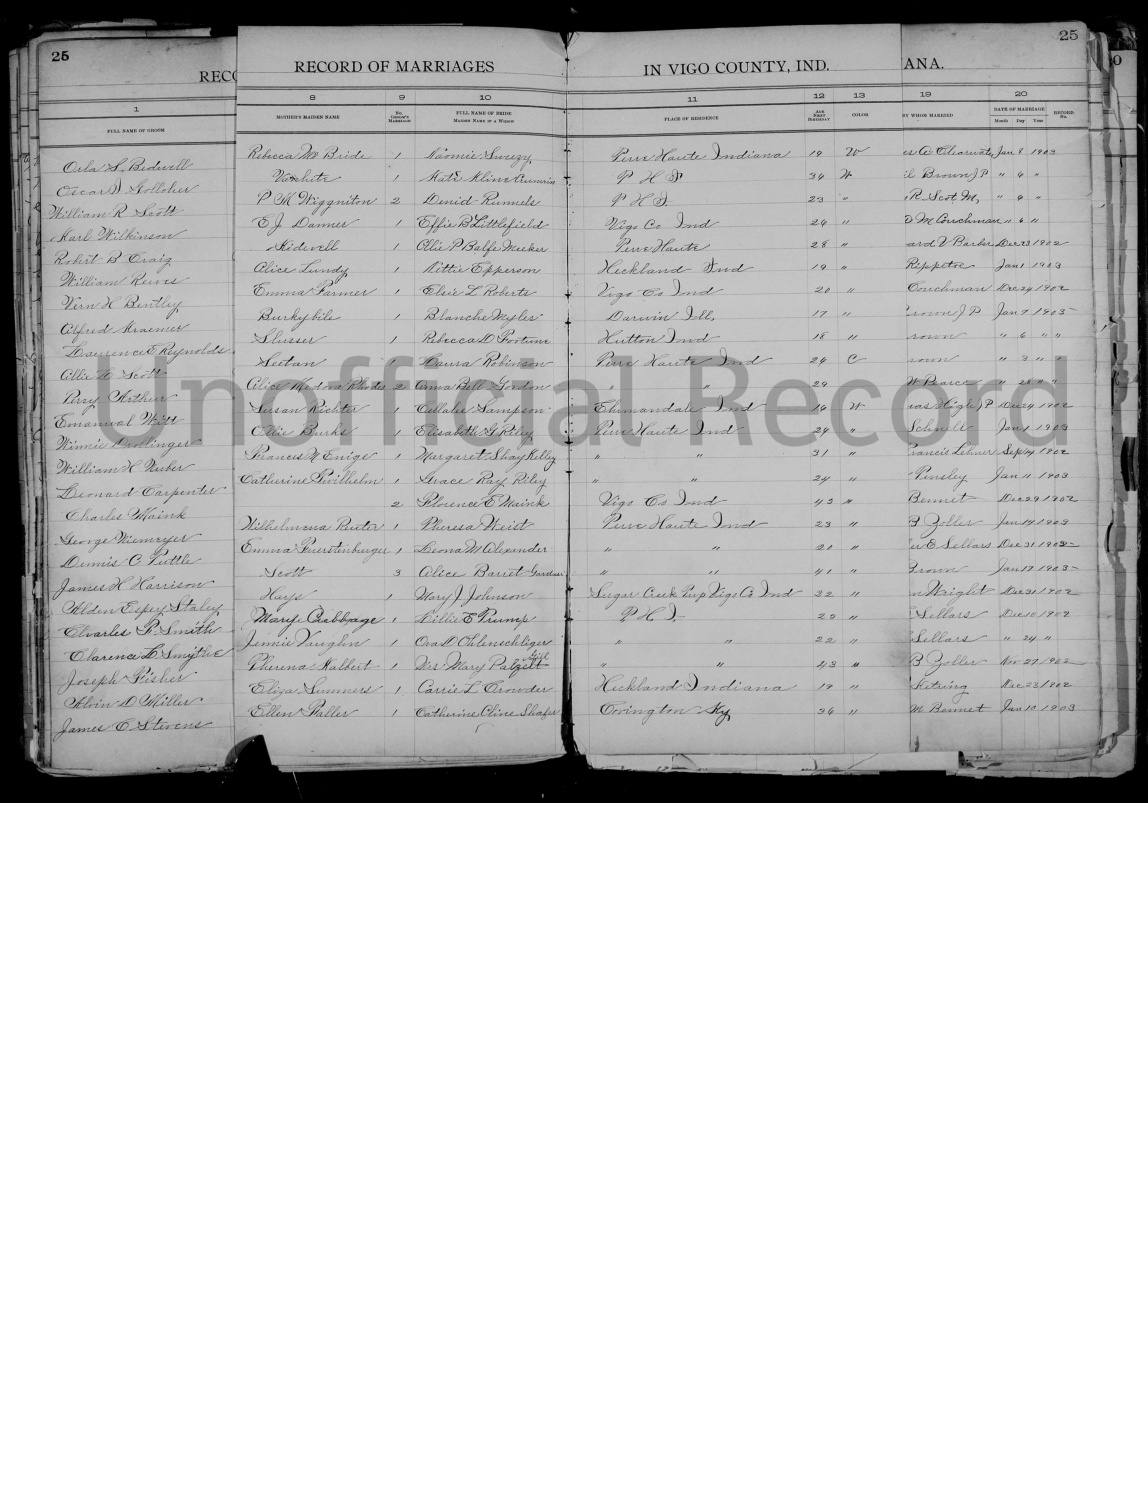 25 25
RECORD OF MARRIAGES IN VIGO COUNTY, IND. ANA.
RECO
1 8 9 10 11 12 13 19 20
FULL NAME OF GROOM MOTHER'S MAIDEN NAME No. GROOM'S MARRIAGE FULL NAME OF BRIDE MAIDEN NAME IF A WIDOW PLACE OF RESIDENCE AGE NEXT BIRTHDAY COLOR BY WHOM MARRIED DATE OF MARRIAGE Month Day Year RECORD No.
Orla S. Bidwell Rebecca Mc Bride 1 Naomie Swezy Terre Haute Indiana 19 W Clearwate Jan 8 1903
Oscar Golloher Vanhite 1 Kate Kline T H I 34 W Brown J P " 6 "
William R Scott P M Wiggniton 2 Denid Runnels T H I 23 " R. Scot M, " "
Karl Wilkinson E J Danner 1 Effie B Littlefield Vigo Co Ind 24 " M Couchman " 6 "
Robert B Craig Kidwell 1 Ollie P Balfe Meeker Terre Haute 28 " ard V Barber Dec 23 1902
William Reeves Alice Lundy 1 Nittie Epperson Heckland Ind 19 " Reppetoe Jan 1 1903
Vern H Bentley Emma Farmer 1 Elsie L Roberts Vigo Co Ind 20 " Couchman Dec 24 1902
Alfred Kraemer Burkybile 1 Blanche Myles Darwin Ill, 17 " rown J P Jan 7 1903
Laurence E Reynolds Slusser 1 Rebecca D Fortune Hutton Ind 18 " rown " 6 " "
Ollie Scott Seetan 1 Laura Robinson Terre Haute Ind 24 C rown " 3 " "
Perry Arthur Alice Medora Rhodes 2 Anna Bell Gordon " " 29 W Pearce " 28 " "
Emanuel Witt Susan Richter 1 Cellales Sampson Ehrmandale Ind 16 W J P Dec 24 1902
Winnie Drollinger Ollie Burks 1 Elisabeth G Riley Terre Haute Ind 24 " Schnell Jan 1 1903
William H Nuber Frances M Enige 1 Margaret Shay Kelley " " 31 " rancis Lehner Sept 14 1902
Leonard Carpenter Catherine 1 Grace Ray Riley " " 24 " Tinsley Jan 11 1903
Charles Maink 2 Florence E Maink Vigo Co Ind 43 " Bennet Dec 29 1902
George Niemeyer Wilhelmena Reuter 1 Theresa Weist Terre Haute Ind 23 " B Zoller Jan 14 1903
Dennis C Tuttle Emma Fuerstenberger 1 Leona M Alexander " " 20 " E Sellars Dec 31 1902
James H Harrison Scott 3 Alice Barret Gardner " " 41 " Brown Jan 17 1903
Alden Espey Staley Hays 1 Mary J Johnson Sugar Creek Twp Vigo Co Ind 32 " n Wright Dec 31 1902
Charles P. Smith Mary Cabbage 1 Lillie E Trump T H I 22 " Sellars Dec 10 1902
Clarence L Smythe Jennie Vaughn 1 Ora D Ohlenschliger " " 22 " Sellars " 24 "
Joseph Fisher Therena Halbert 1 Mrs Mary " " 43 " B Zoller Nov 27 1902
Alvin D Miller Eliza Summers 1 Carrie L Crowder Heckland Indiana 19 " Ketring Dec 23 1902
James O Stevens Ellen Faller 1 Catherine Cline Shafer Covington Ky 36 " M Bennet Jan 10 1903
Unofficial Record